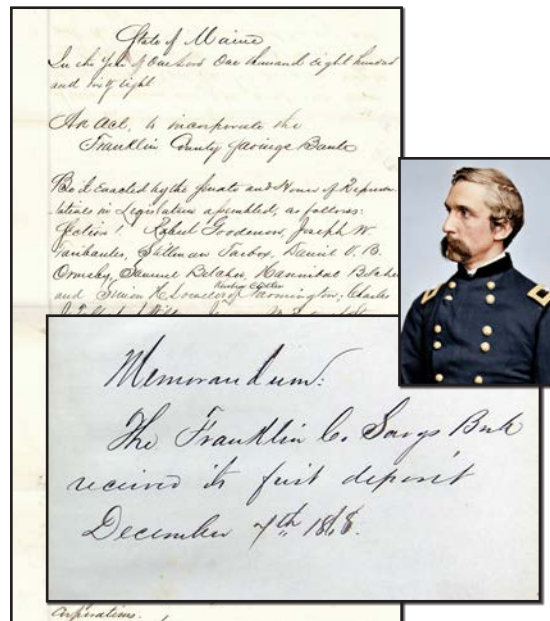 State of Maine
In the Year of Our Lord One thousand eight hundred
and sixty eight
An Act, to incorporate the
Franklin County Savings Bank
Be it Enacted by the Senate and House of Represen
tatives in Legislature assembled, as follows:
Section 1. Robert Goodenow, Joseph W.
Fairbanks, Stillman Tarbox, Daniel V. B.
Ormsby, Samuel Belcher, Hannibal Belcher
and Simon H. of Farmington; Charles
Memorandum:
The Franklin Co. Savgs Bank
received its first deposit
December 7th 1868.
Corporations.